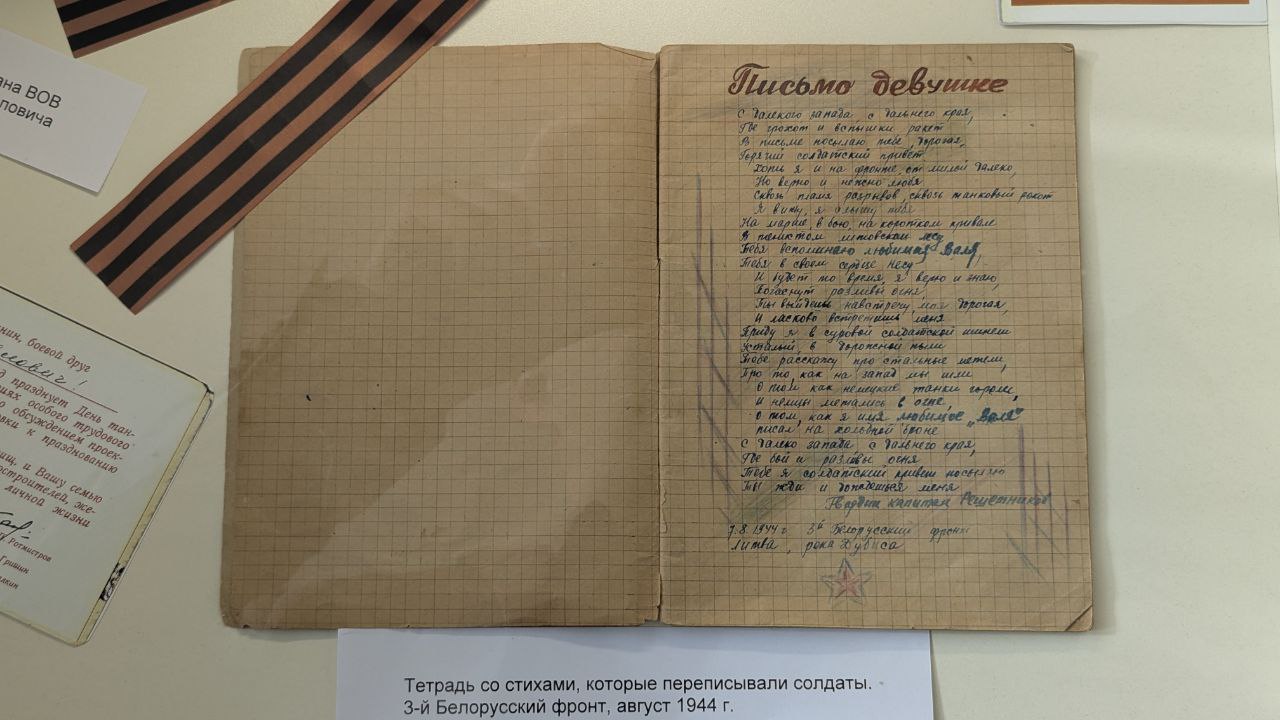 ана ВОВ
повича
Письмо девушке
С далекого запада, с дальнего края,
Где грохот и вспышки ракет
В письме посылаю тебе, дорогая,
Горячий солдатский привет
Хоть я и на фронте, от милой далеко,
Но верно и нежно любя
Сквозь пламя разрывов, сквозь танковый рокот
Я вижу, я слышу тебя
На марше, в бою, на коротком привале
В тенистом литовском лесу
Тебя вспоминаю любимая Валя,
Тебя в своем сердце несу
И будет то время, я верю и знаю,
Погаснут разливы огня,
Ты выйдешь навстречу моя дорогая,
И ласково встретишь меня
Приду я в суровой солдатской шинели
Усталый, в дорожной пыли
Тебе расскажу про стальные метели,
Про то, как на запад мы шли
О том как немецкие танки горели,
И немцы метались в огне.
О том, как я имя любимое „Валя"
писал на холодной броне
С далеко запада, с дальнего края,
Где бой и разливы огня
Тебе я солдатский привет посылаю
Ты жди и дождешься меня
Гвардии капитан Решетников
7.8.1944 г 3й Белорусский фронт
Литва, река Дубыса
нин, боевой друг
лович!
д празднует День тан-
иях особого трудового
о обсуждением проек-
вки к празднованию
ищ, и Вашу семью
остроителей, же-
личной жизни
Ротмистров
Гришин
лкин
Тетрадь со стихами, которые переписывали солдаты.
3-й Белорусский фронт, август 1944 г.